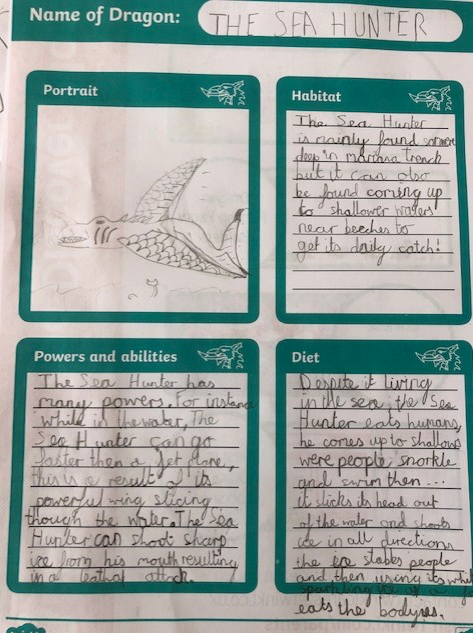 Name of Dragon: THE SEA HUNTER
Portrait
Habitat
The Sea Hunter
is mainly found
deep in mariana trench
but it can also
be found coming up
to shallower waters
near beeches to
get its daily catch!
Powers and abilities
The Sea Hunter has
many powers. For instance
while in the water, The
Sea Hunter can go
faster then a Jet plane,
this is a result of its
powerful wing slicing
though the water. The Sea
Hunter can shoot sharp
ice from his mouth resulting
in a leathal attack.
Diet
Despite it living
in the sea, the Sea
Hunter eats humans,
he comes up to shallows
were people snorkle
and swim then ...
it sticks its head out
of the water and shoots
ice in all directions
the ice stabes people
and then using its
eats the bodyies.